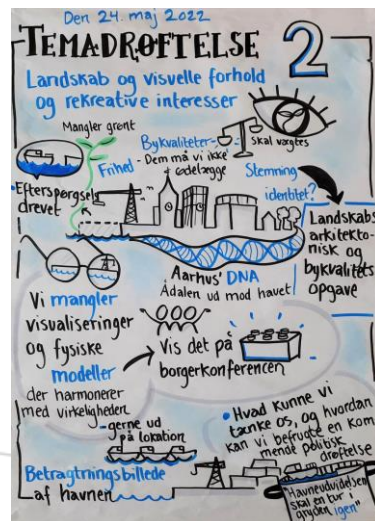 Den 24. maj 2022
TEMADRØFTELSE 2
Landskab og visuelle forhold
og rekreative interesser
Mangler grønt
Frihed
Bykvaliteter
- Dem må vi ikke
ødelægge
Skal vægtes
Stemning
identitet?
• Efterspørgsels
drevet
Landskabs
arkitekto-
nisk og
bykvalitets
opgave
Aarhus' DNA
Ådalen ud mod havet
Vi mangler
visualiseringer
og fysiske
modeller
der harmonerer
med virkeligheden
Vis det på
borgerkonferencen
- gerne ud
på lokation
Betragtningsbillede
af havnen
• Hvad kunne vi
tænke os, og hvordan
kan vi befrugte en kom
mende politisk
drøftelse
"Havneudvidelsen
skal en tur i
gryden igen"